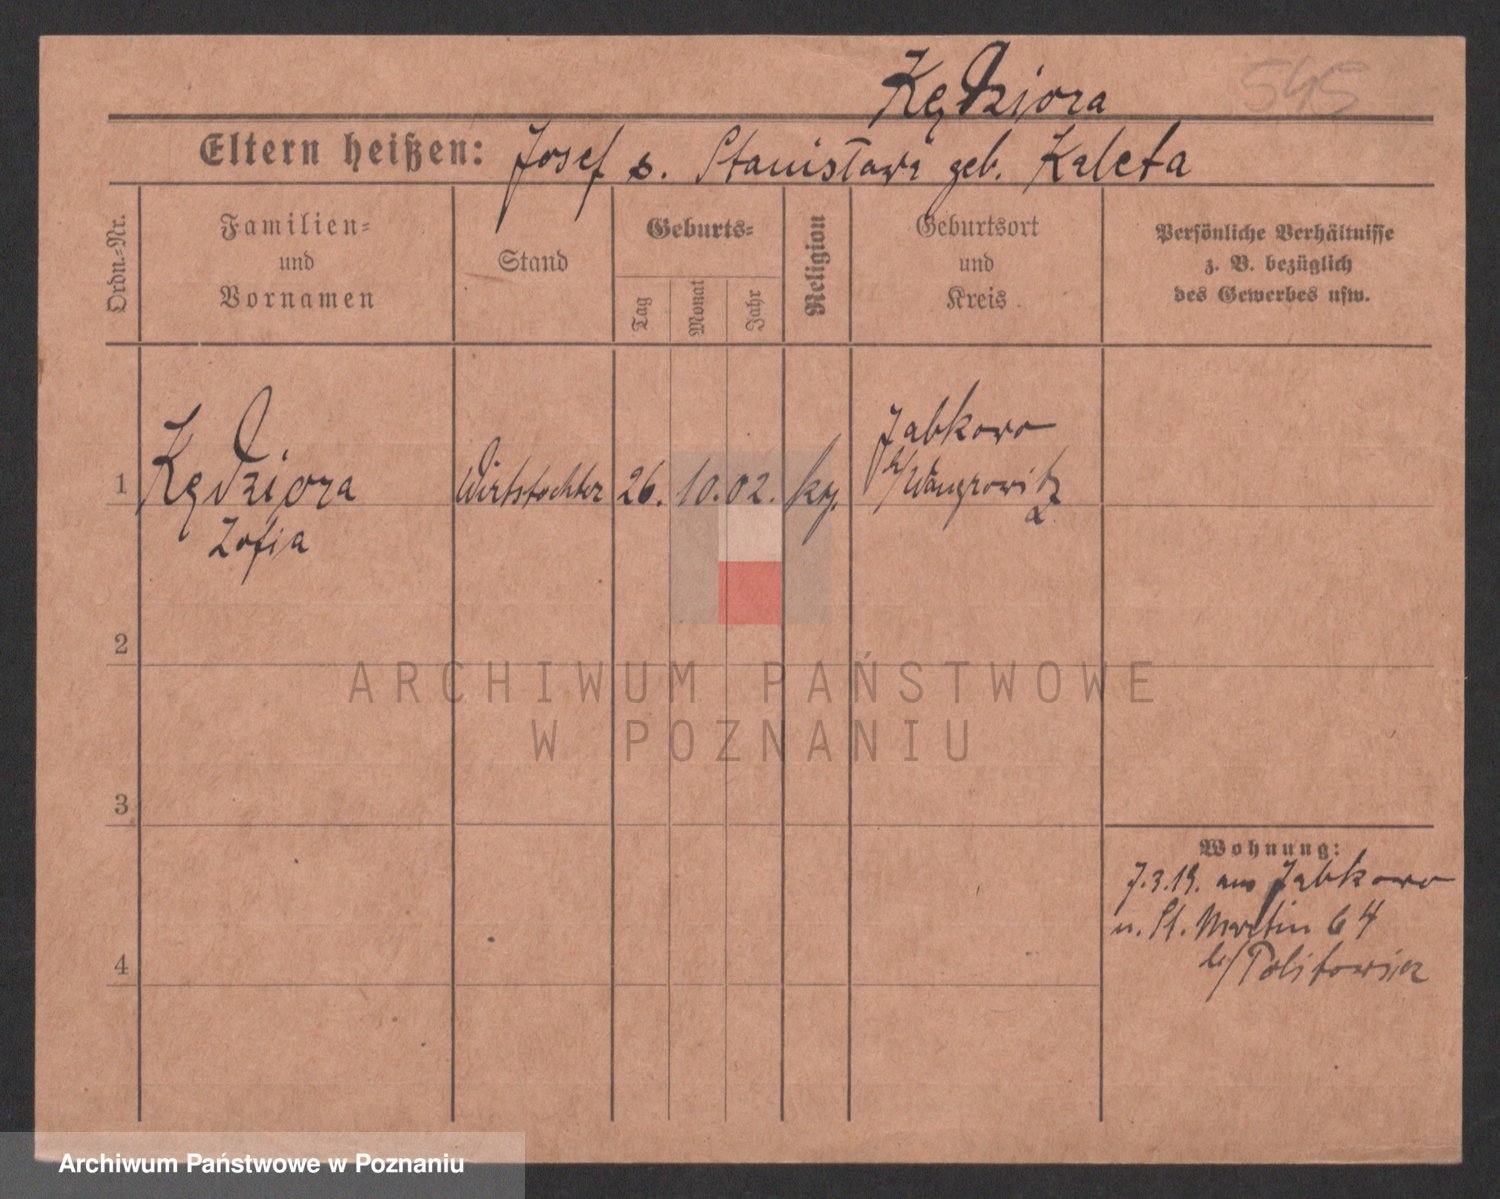 Kędziora
545
Eltern heißen: Josef s. Stanisława geb. Kaleta
Ordn.-Nr.
Familien-
und
Vornamen
Stand
Geburts-
Tag
Monat
Jahr
Religion
Geburtsort
und
Kreis
Persönliche Verhältnisse
z. B. bezüglich
des Gewerbes usw.
Jabkowo
1 Kędziora Wirtstochter 26. 10. 02. Kr/Wongrowitz
Zofia
2
ARCHIWUM PAŃSTWOWE
W POZNANIU
3
Wohnung:
7.3.19. aus Jabkowo
n. St. Martin 64
b/Politowicz
4
Archiwum Państwowe w Poznaniu